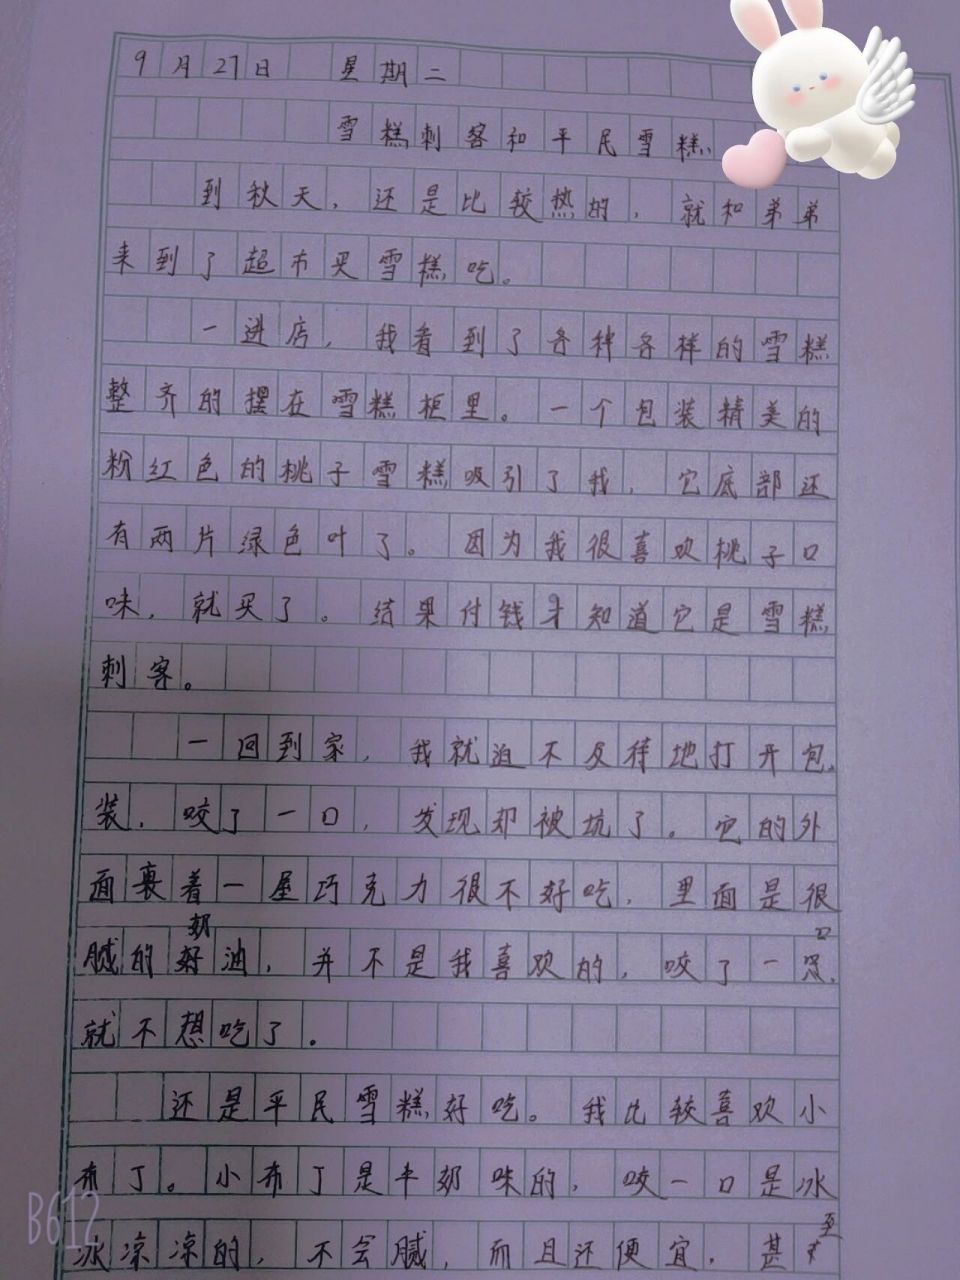 9月27日 星期二
雪糕刺客和平民雪糕
到秋天，还是比较热的，就和弟弟
来到了超市买雪糕吃。
一进店，我看到了各种各样的雪糕
整齐的摆在雪糕柜里。一个包装精美的
粉红色的桃子雪糕吸引了我，它底部还
有两片绿色叶了。因为我很喜欢桃子口
味，就买了。结果付钱才知道它是雪糕
刺客。
一回到家，我就迫不及待地打开包
装，咬了一口，发现却被坑了。它的外
面裹着一层巧克力很不好吃，里面是很
腻的奶油，并不是我喜欢的，咬了一口
就不想吃了。
还是平民雪糕好吃。我比较喜欢小
布丁。小布丁是牛奶味的，咬一口是冰
冰凉凉的，不会腻，而且还便宜，甚至
B612